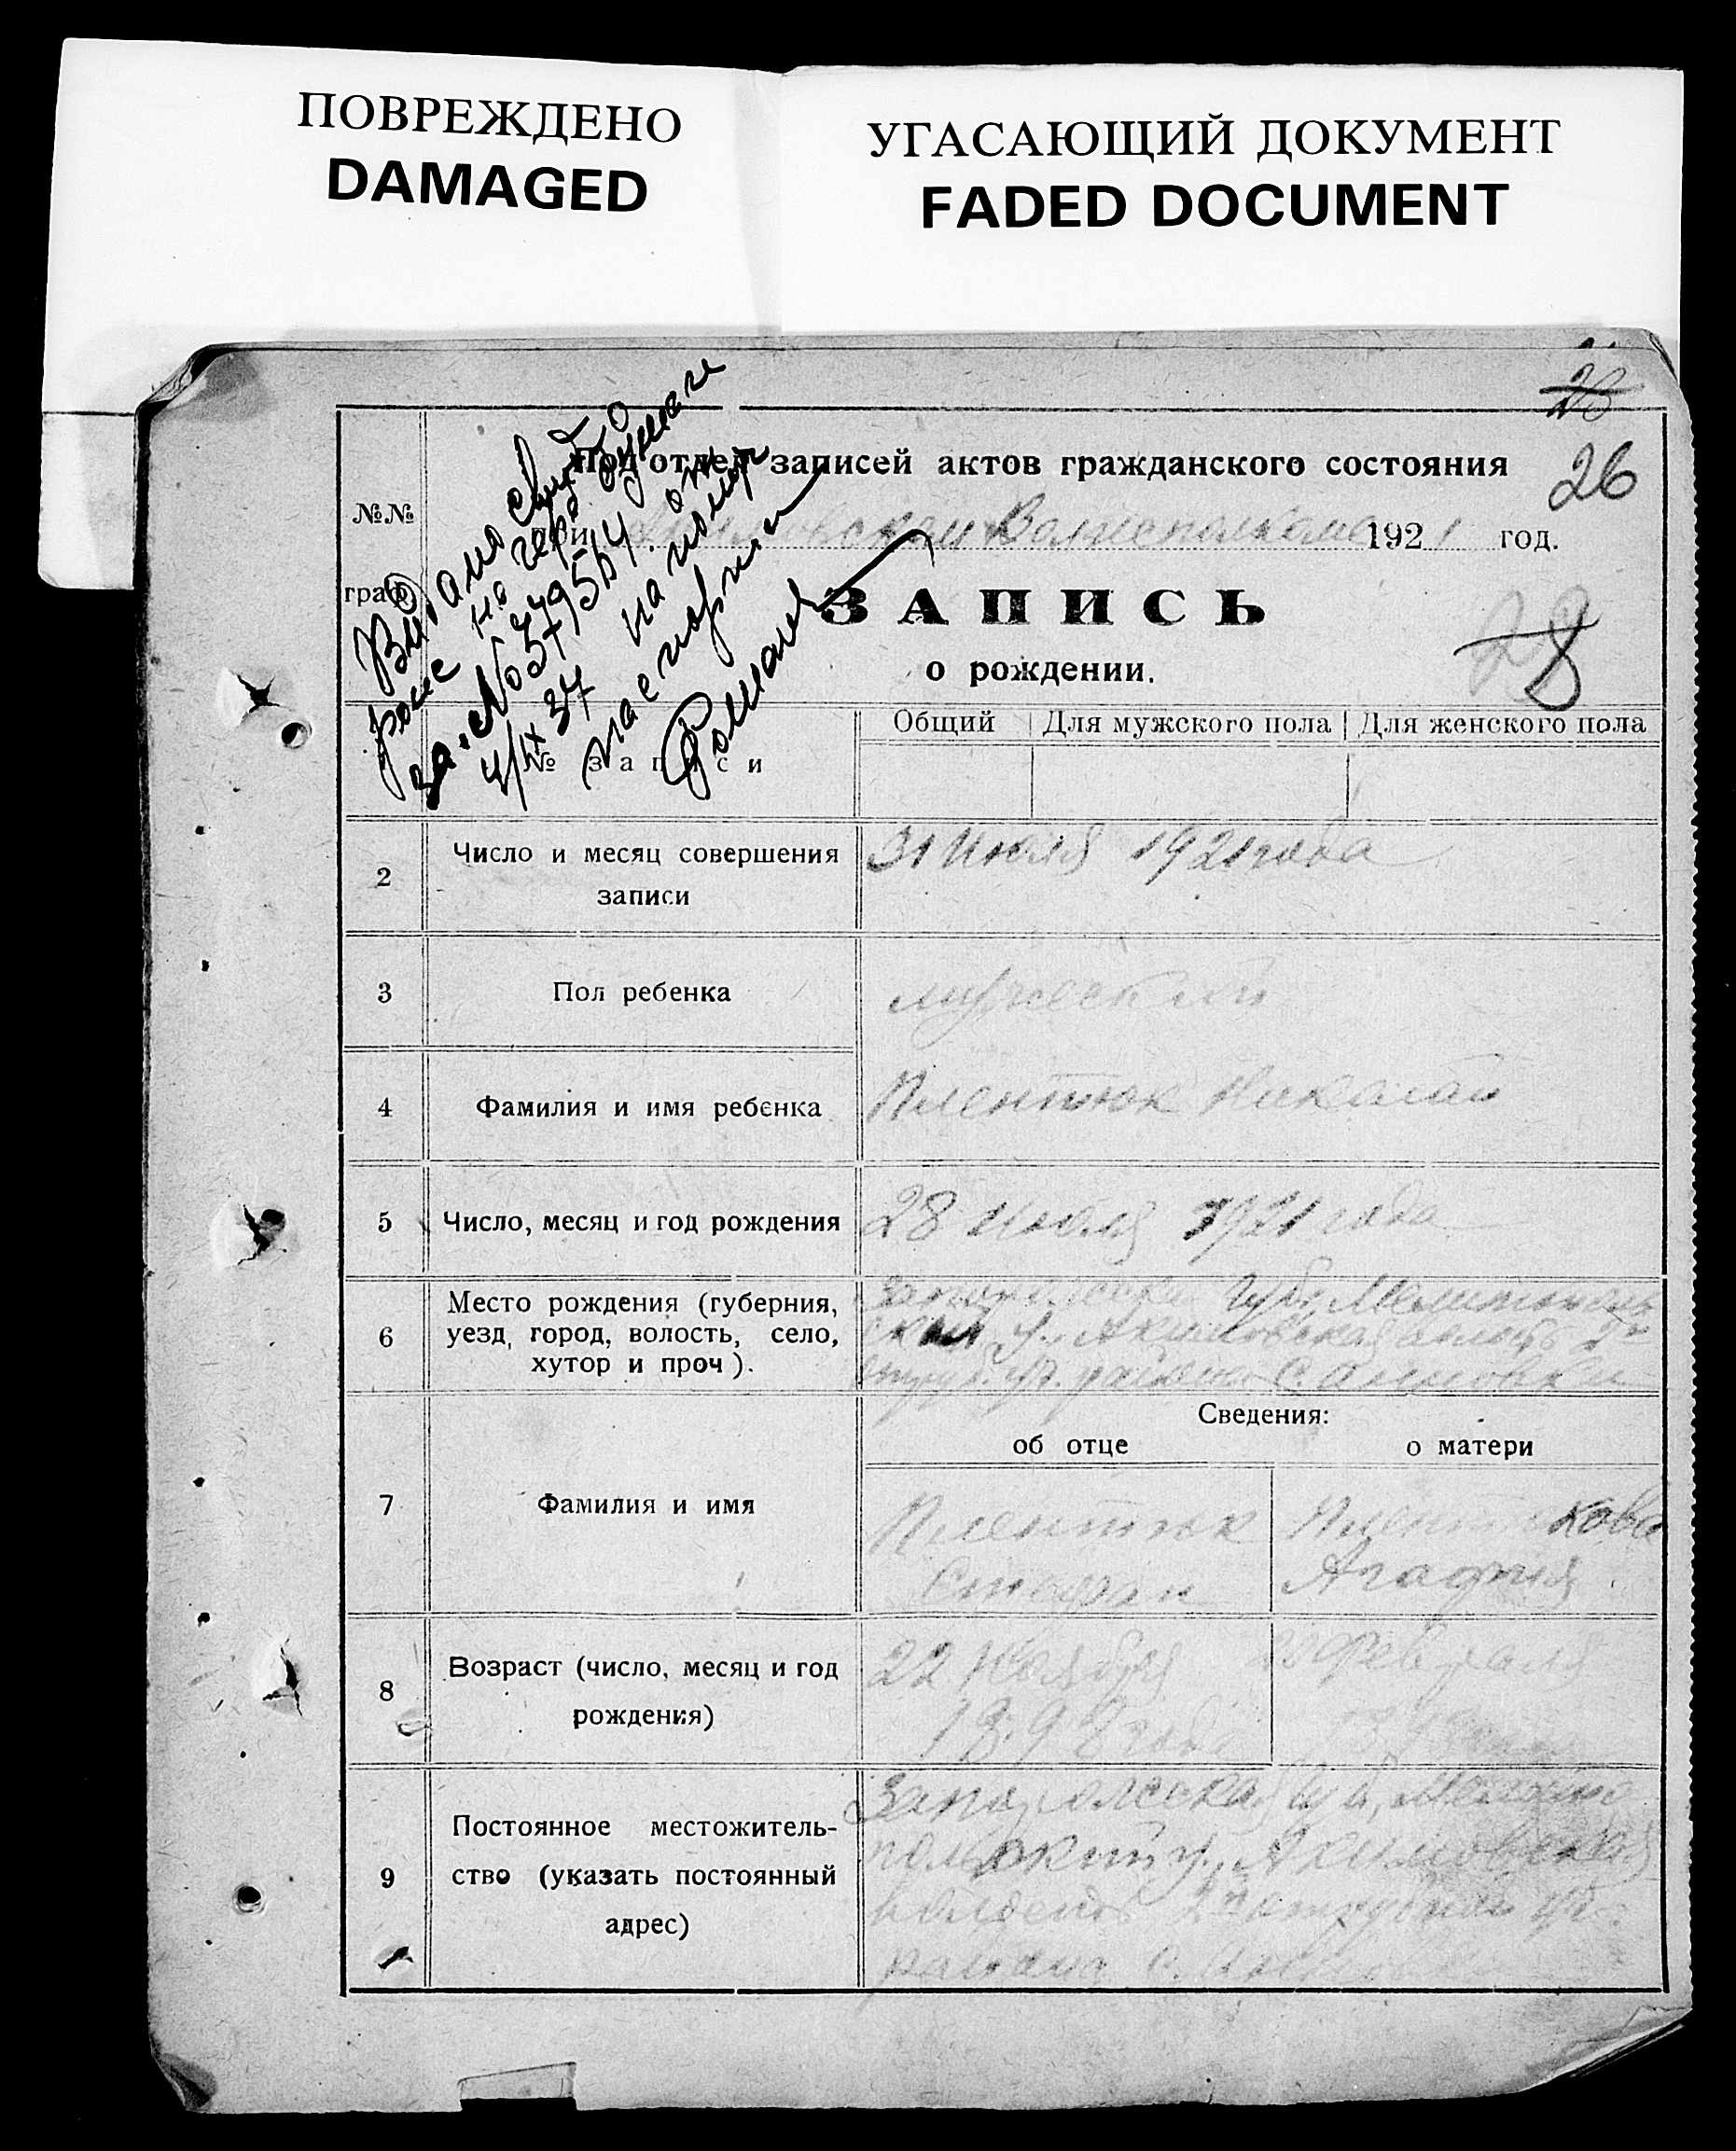 ПОВРЕЖДЕНО
DAMAGED
УГАСАЮЩИЙ ДОКУМЕНТ
FADED DOCUMENT
28
26
Под'отдел записей актов гражданского состояния
При Акимовском Волисполкоме 1921 год.
№№
граф
ЗАПИСЬ
о рождении.
28
Выдано
на гер. бумаге
за № 379564 от
4/IX 37 на
паспорта
Общий Для мужского пола Для женского пола
№ записи
2 Число и месяц совершения записи
31 Июля 1921 года
3 Пол ребенка
мужеский
4 Фамилия и имя ребенка
Плентюк Николай
5 Число, месяц и год рождения
28 Июля 1921 года
6 Место рождения (губерния,
уезд, город, волость, село,
хутор и проч).
Запорожская Губ, Мелитополь
ский у. Акимовская волость 2го
района С. Анновки
Сведения:
об отце о матери
7 Фамилия и имя
Плентюк
Стефан
кова
Агафия
8 Возраст (число, месяц и год
рождения)
22 Ноября
189 года
22 Февраля
9 Постоянное местожитель-
ство (указать постоянный
адрес)
Запорожская Губ, Мелито
польский у, Акимовская
волость 2го
района с.